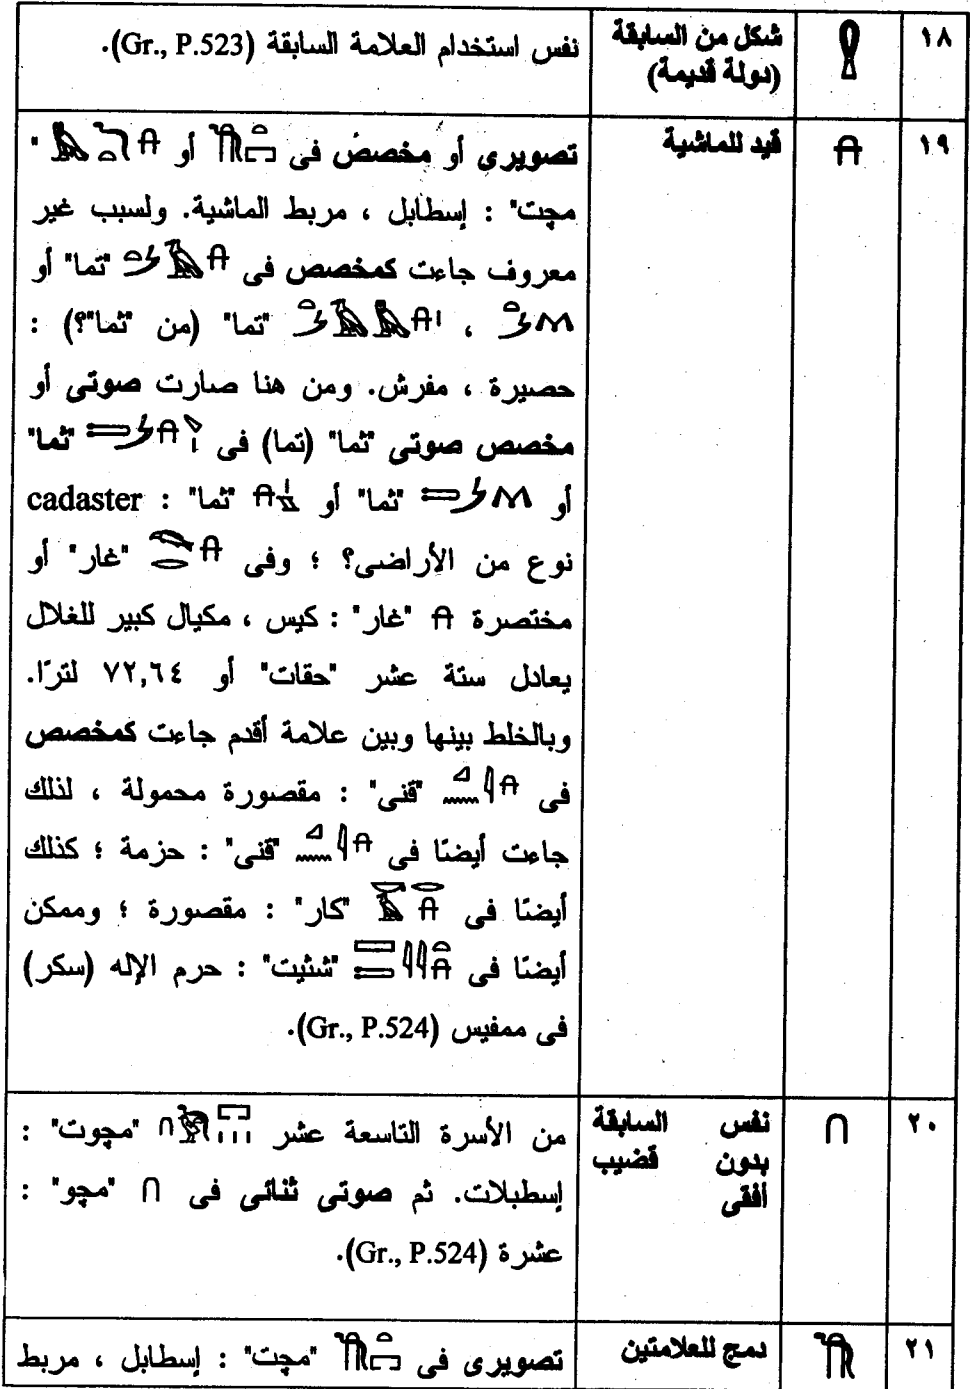 ١٨ شكل من السابقة نفس استخدام العلامة السابقة (Gr., P.523).
(دولة قديمة)
١٩ قيد للماشية تصويرى أو مخصص فى أو "
مچت" : إسطابل ، مربط الماشية. ولسبب غير
معروف جاءت كمخصص فى "تما" أو
، "تما" (من "ثما"؟) :
حصيرة ، مفرش. ومن هنا صارت صوتى أو
مخصص صوتى "ثما" (تما) فى "ثما"
أو "ثما" أو "ثما" : cadaster
نوع من الأراضى؟ ؛ وفى "غار" أو
مختصرة "غار" : كيس ، مكيال كبير للغلال
يعادل ستة عشر "حقات" أو ٧٢,٦٤ لترًا.
وبالخلط بينها وبين علامة أقدم جاءت كمخصص
فى "قنى" : مقصورة محمولة ، لذلك
جاءت أيضًا فى "قنى" : حزمة ؛ كذلك
أيضًا فى "كار" : مقصورة ؛ وممكن
أيضًا فى "شثيت" : حرم الإله (سكر)
فى ممفيس (Gr., P.524).
٢٠ نفس السابقة من الأسرة التاسعة عشر "مچوت" :
بدون قضيب إسطبلات. ثم صوتى ثنائى فى "مچو" :
أفقى عشرة (Gr., P.524).
٢١ دمج للعلامتين تصويرى فى "مچت" : إسطابل ، مربط